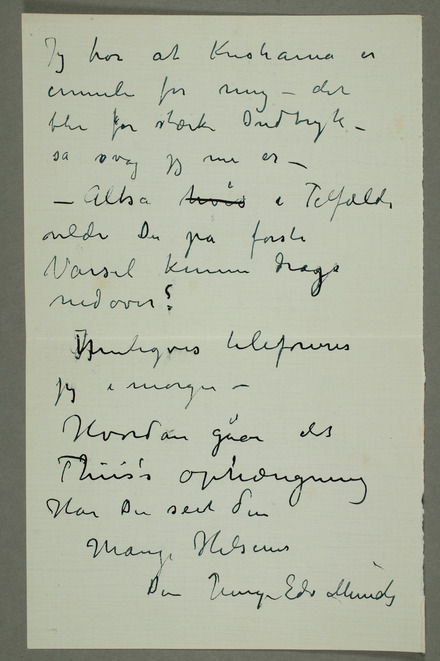 Jeg tror at Kristiania er
umulig for mig – det
blir for stærke Indtryk –
så svag jeg nu er –
– Altså hvis i Tilfælde
vilde Du på første
Varsel kunne drage
nedover?
telefoneres
jeg i morgen –
Hvordan gåer det
Thiis's ophængning
Har Du seet den
Mange Hilsener
Din Edv Munch